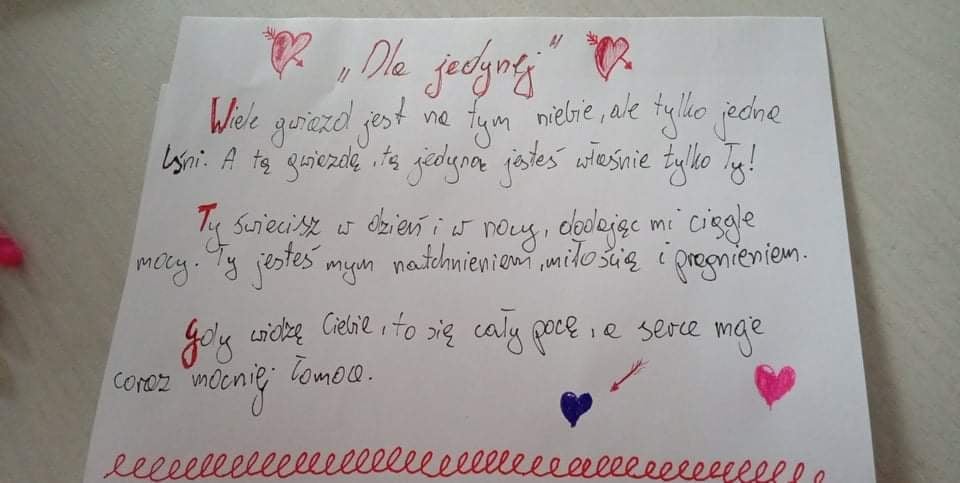 „Dla jedynej"
Wiele gwiazd jest na tym niebie, ale tylko jedna
lśni. A tą gwiezdą, tą jedyną jesteś właśnie tylko Ty!
Ty świecisz w dzień i w nocy, dodając mi ciągle
mocy. Ty jesteś mym natchnieniem, miłością i pragnieniem.
Gdy widzę Ciebie, to się cały pocę, a serce moje
coraz mocniej łomoce.